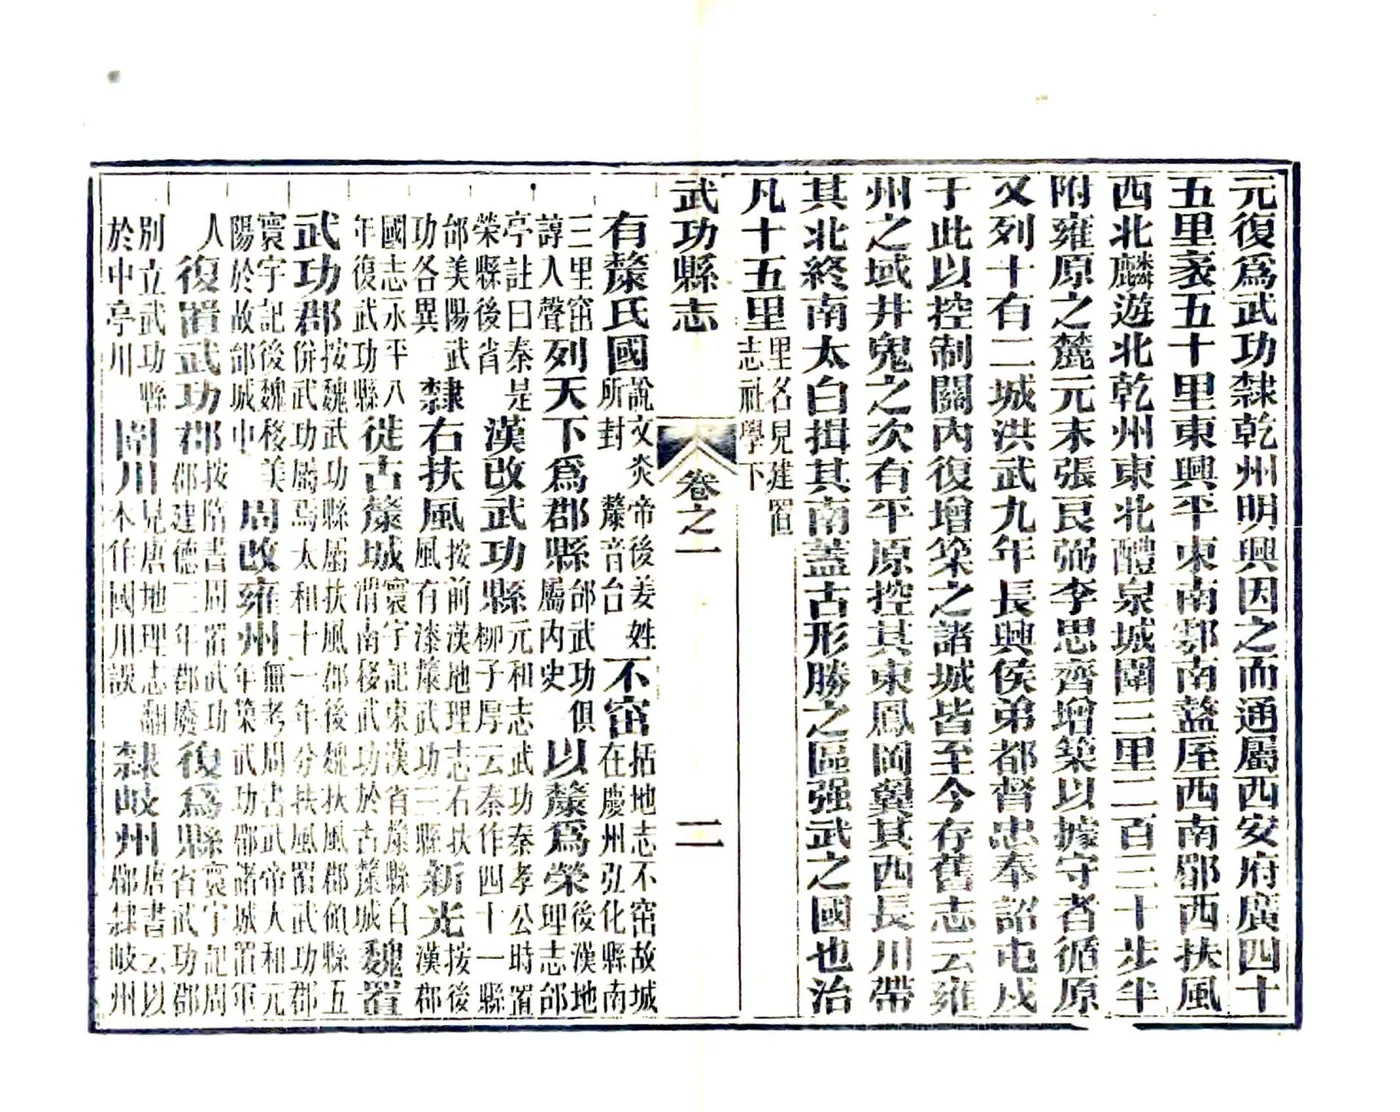 元復爲武功隸乾州明興因之而通屬西安府廣四十
五里袤五十里東興平東南鄠南盩厔西南郿西扶風
西北麟遊北乾州東北醴泉城圍三里二百三十步半
附雍原之麓元末張良弼李思齊增築以據守者循原
又列十有二城洪武九年長興侯弟都督忠奉詔屯戍
于此以控制關內復增築之諸城皆至今存舊志云雍
州之域井鬼之次有平原控其東鳳岡翼其西長川帶
其北終南太白揖其南蓋古形勝之區强武之國也治
凡十五里里名見建置志社學下
武功縣志
卷之一
二
有斄氏國說文炎帝後姜姓所封 斄音台不窋括地志不窋故城在慶州弘化縣南
三里窋諄人聲列天下爲郡縣邰武功俱屬內史以斄爲榮後漢地理志邰
亭註曰秦是榮縣後省漢改武功縣元和志武功秦孝公時置柳子厚云秦作四十一縣
邰美陽武功各異隸右扶風按前漢地理志右扶風有漆斄武功三縣新光按後漢郡
國志永平八年復武功縣徙古斄城寰宇記東漢省斄縣自渭南移武功於古斄城魏置
武功郡按魏武功縣屬扶風郡後魏扶風郡領縣五併武功屬焉太和十一年分扶風置武功郡
寰宇記後魏移美陽於故邰城中周改雍州無考周書武帝人和元年築武功郡諸城置軍
人復置武功郡按隋書周置武功郡建德三年郡廢復爲縣寰宇記周省武功郡
別立武功縣於中亭川圍川見唐地理志翻本作國川誤隸岐州唐書云以郡隸岐州